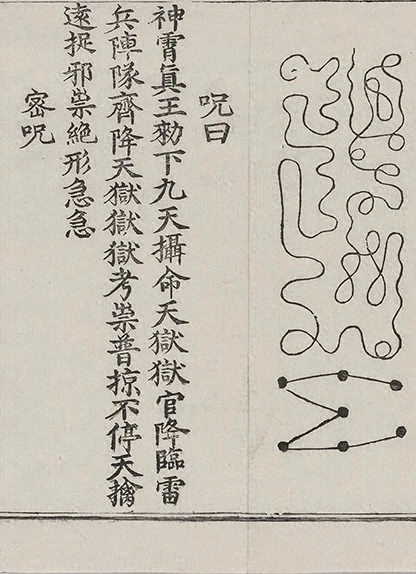 呪曰
神霄眞王勑下九天攝命天獄獄官降臨雷
兵陣隊齊降天獄獄獄考祟普掠不停天擒
遠捉邪祟絶形急急
密呪